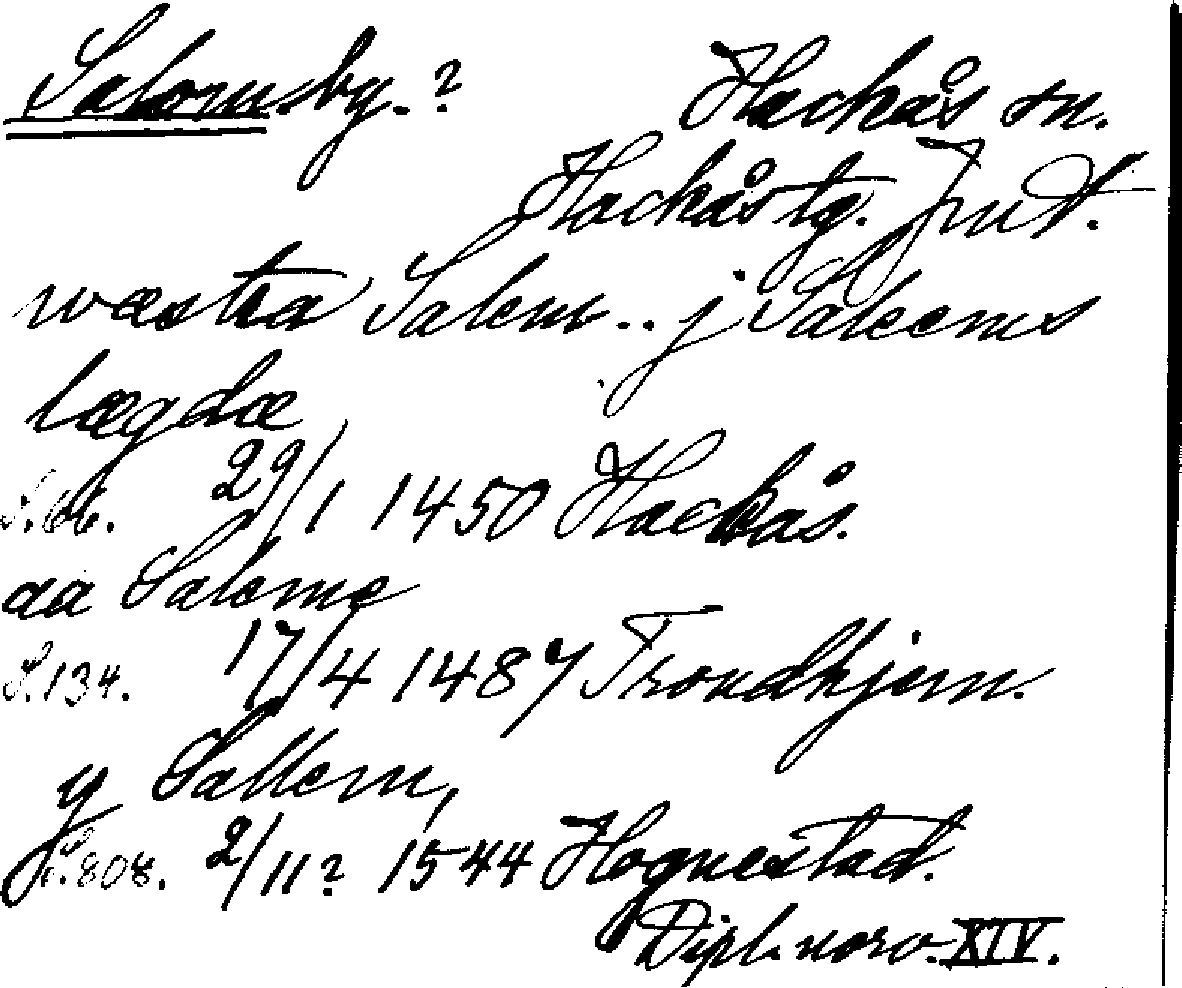 Salomsby.? Hackås sn.
Hackås tg. Jmt.
wæstra Salem .. j Saleems
lægdæ
S.66. 29/1 1450 Hackås.
aa Saleme
S.134. 17/4 1487 Trondhjem.
y Sallem,
S.808. 2/11? 1544 Hognestad.
Dipl. norv. XIV.